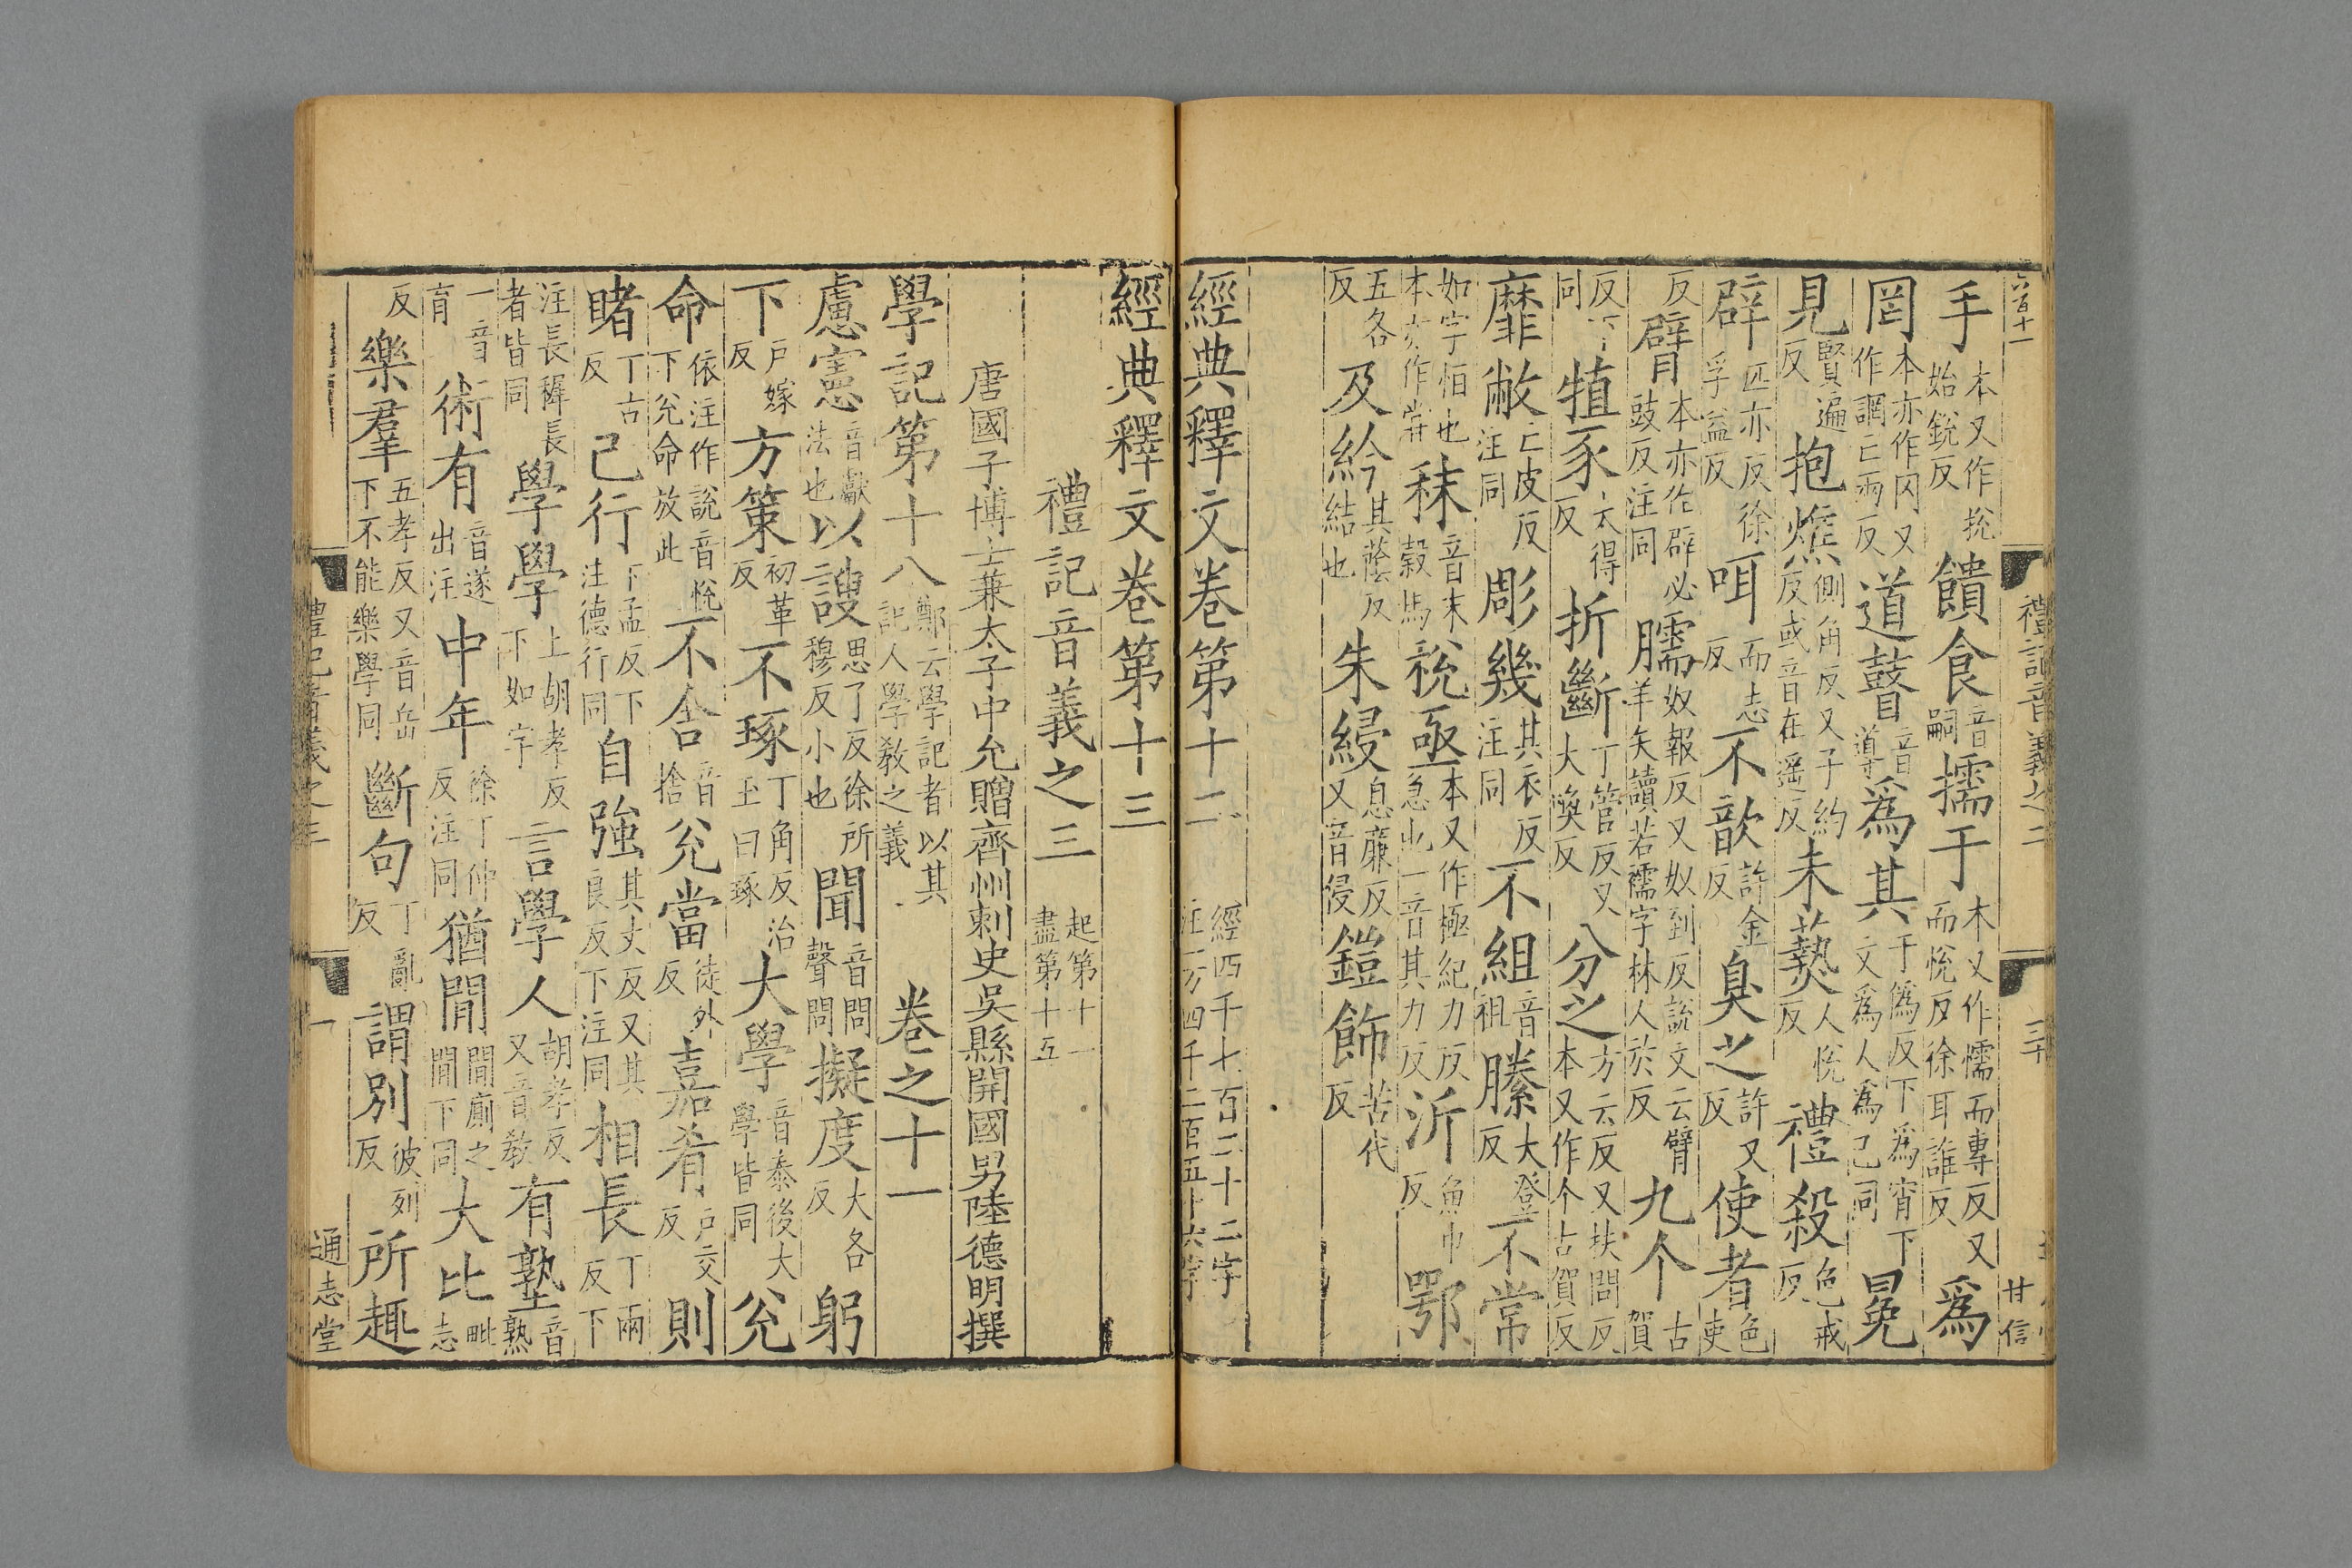 六百十一
禮記音義之二
三十
甘信
手本又作挩始銳反饋食音嗣擩于本又作懦而專反又而悅反徐耳誰反爲
罔本亦作冈又作誷亡兩反道瞽音導爲其于僞反下爲宵下文爲人爲己同冕
見賢遍反抱燋側角反又子約反或音在遥反未爇人悅反禮殺色戒反
辟匹亦反徐孚益反咡而志反不歆許金反臭之許又反使者色吏
反臂本亦作辟必豉反注同臑奴報反又奴到反說文云臂羊矢讀若襦字林人於反九个古賀
反下同犆豕大得反折斷丁管反又大喚反分之方云反又扶問反本又作个古賀反
靡敝亡皮反注同彫幾其衣反注同不組音祖縢大登反不常
如字恒也本亦作嘗秣音末穀馬稅亟本又作極紀力反急也一音其力反沂魚巾反鄂
五各反及紟其蔭反結也朱綅息廉反又音侵鎧飾苦代反
經典釋文卷第十二 經四千七百二十二字注一万四千二百五十六字
經典釋文卷第十三
禮記音義之三 起第十一盡第十五
唐國子博士兼太子中允贈齊州刺史吳縣開國男陸德明撰
學記第十八鄭云學記者以其記人學教之義 卷之十一
慮憲音獻法也以謏思了反徐所穆反小也聞音問聲問擬度大各反躬
下戶嫁反方策初革反不琢丁角反治玉曰琢大學音泰後大學皆同兊
命依注作說音悅下兊命放此不舍音捨兊當徒外反嘉肴戶交反則
睹丁古反己行下孟反下注德行同自強其丈反又其良反下注同相長丁兩反下
注長穉長者皆同學學上胡孝反下如字言學人胡孝反又音教有塾音熟
一音育術有音遂出注中年徐丁仲反注同猶閒閒廁之閒下同大比毗志
反樂羣五孝反又音岳下不能樂學同斷句丁亂反謂別彼列反所趣
禮記音義之三
一
通志堂